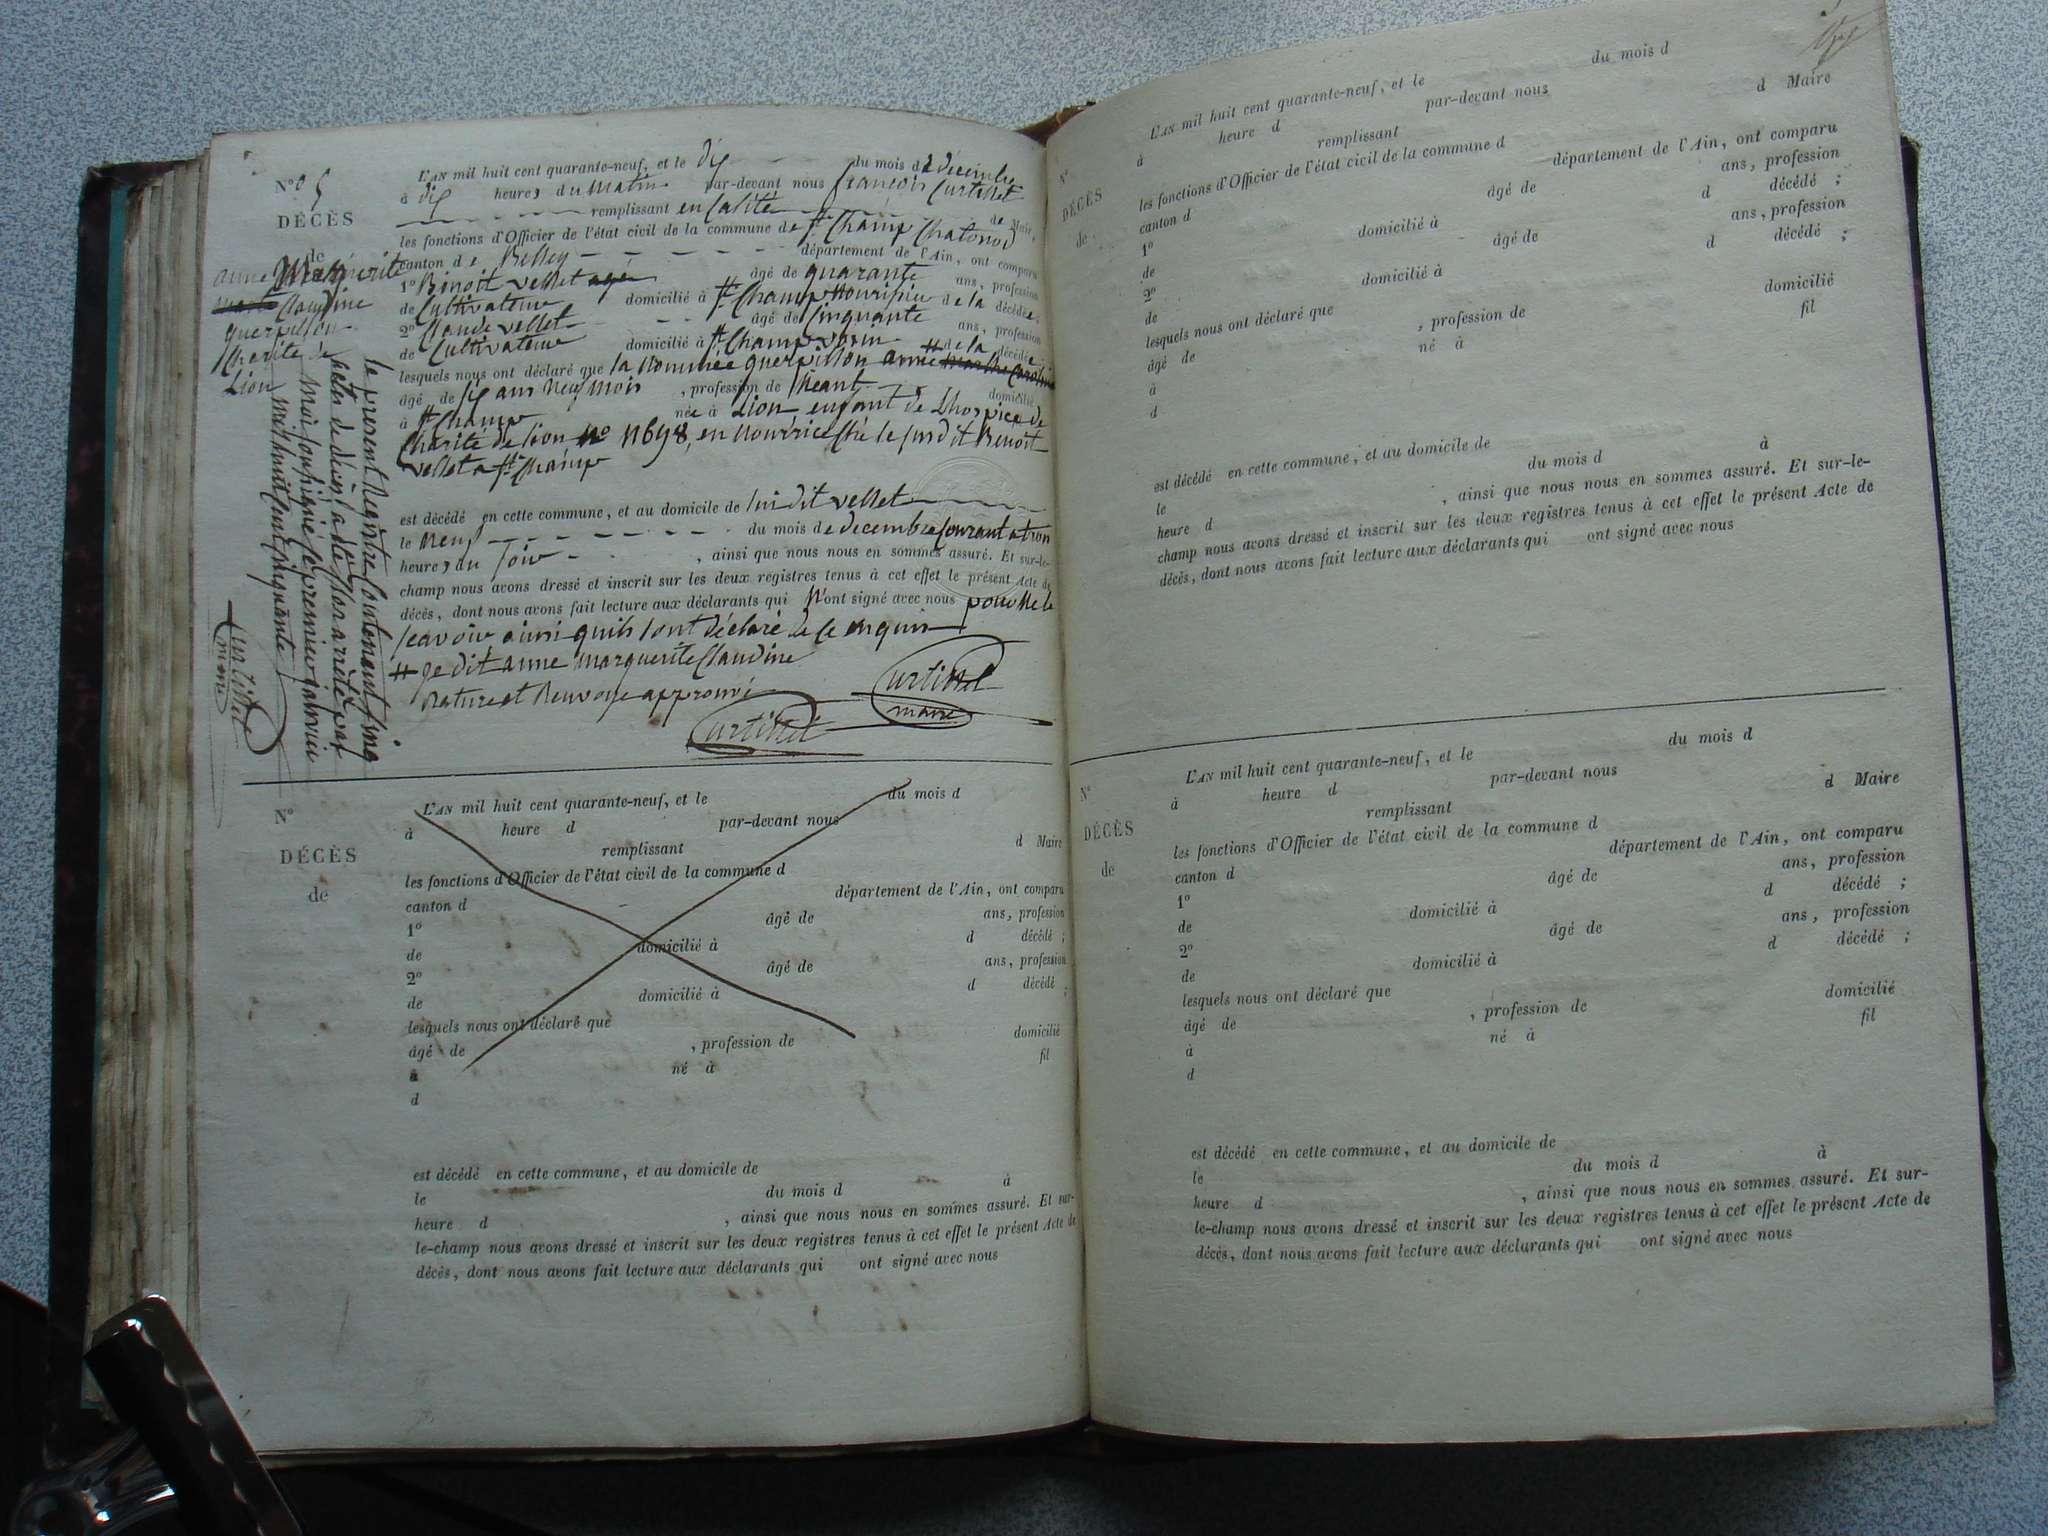 N° 5
DÉCÈS
de
anne Marguerite
Claudine
querpillon
Charité de
Lion
L'AN mil huit cent quarante-neuf, et le dix du mois de décembre
à dix heures du matin par-devant nous françois Curtillet
remplissant en calité de Maire,
les fonctions d'Officier de l'état civil de la commune de St Champ Chatonod
canton de Belley département de l'Ain, ont comparu
1° Benoit vellet agé âgé de quarante ans, profession
de Cultivateur domicilié à St Champ nouricier de la décédée;
2° Claude vellet âgé de Cinquante ans, profession
de Cultivateur domicilié à St Champ voisin de la décédée
lesquels nous ont déclaré que la nommée querpillon anne
âgé de dix ans neuf mois, profession de Neant domicilié
à St Champ née à Lion enfant de Lhospice de
Charité de lion no 11698, en nourrice ché le susdit Benoit
vellet a St Champ
est décédé en cette commune, et au domicile de susdit vellet
le neuf du mois de decembre Courant a trois
heures du soir, ainsi que nous nous en sommes assuré. Et sur-le-
champ nous avons dressé et inscrit sur les deux registres tenus à cet effet le présent Acte de
décès, dont nous avons fait lecture aux déclarants qui n'ont signé avec nous pour ne le
scavoir ainsi quils lont déclaré de ce enquis
# je dit anne marguerite Claudine
Rature et Renvoie approuvé
Curtillet
maire
Curtillet
le present Registre Contenant Cinq
actes de décès a eté Clos arreté par
Moi soussigné le premier janvier
mil huit cent cinquante
Curtillet
maire
N°
DÉCÈS
de
L'AN mil huit cent quarante-neuf, et le du mois d
à heure d par-devant nous
remplissant d Maire
les fonctions d'Officier de l'état civil de la commune d
canton d département de l'Ain, ont comparu
1° âgé de ans, profession
de domicilié à d décédé ;
2° âgé de ans, profession
de domicilié à d décédé ;
lesquels nous ont déclaré que
âgé de , profession de domicilié
à né à fil
d
est décédé en cette commune, et au domicile de
le du mois d à
heure d , ainsi que nous nous en sommes assuré. Et sur-
le-champ nous avons dressé et inscrit sur les deux registres tenus à cet effet le présent Acte de
décès, dont nous avons fait lecture aux déclarants qui ont signé avec nous
N°
DÉCÈS
de
L'AN mil huit cent quarante-neuf, et le du mois d
à heure d par-devant nous
remplissant d Maire
les fonctions d'Officier de l'état civil de la commune d
canton d département de l'Ain, ont comparu
1° âgé de ans, profession
de domicilié à d décédé ;
2° âgé de ans, profession
de domicilié à d décédé ;
lesquels nous ont déclaré que
âgé de , profession de domicilié
à né à fil
d
est décédé en cette commune, et au domicile de
le du mois d à
heure d , ainsi que nous nous en sommes assuré. Et sur-le-
champ nous avons dressé et inscrit sur les deux registres tenus à cet effet le présent Acte de
décès, dont nous avons fait lecture aux déclarants qui ont signé avec nous
N°
DÉCÈS
de
L'AN mil huit cent quarante-neuf, et le du mois d
à heure d par-devant nous
remplissant d Maire
les fonctions d'Officier de l'état civil de la commune d
canton d département de l'Ain, ont comparu
1° âgé de ans, profession
de domicilié à d décédé ;
2° âgé de ans, profession
de domicilié à d décédé ;
lesquels nous ont déclaré que
âgé de , profession de domicilié
à né à fil
d
est décédé en cette commune, et au domicile de
le du mois d à
heure d , ainsi que nous nous en sommes assuré. Et sur-
le-champ nous avons dressé et inscrit sur les deux registres tenus à cet effet le présent Acte de
décès, dont nous avons fait lecture aux déclarants qui ont signé avec nous